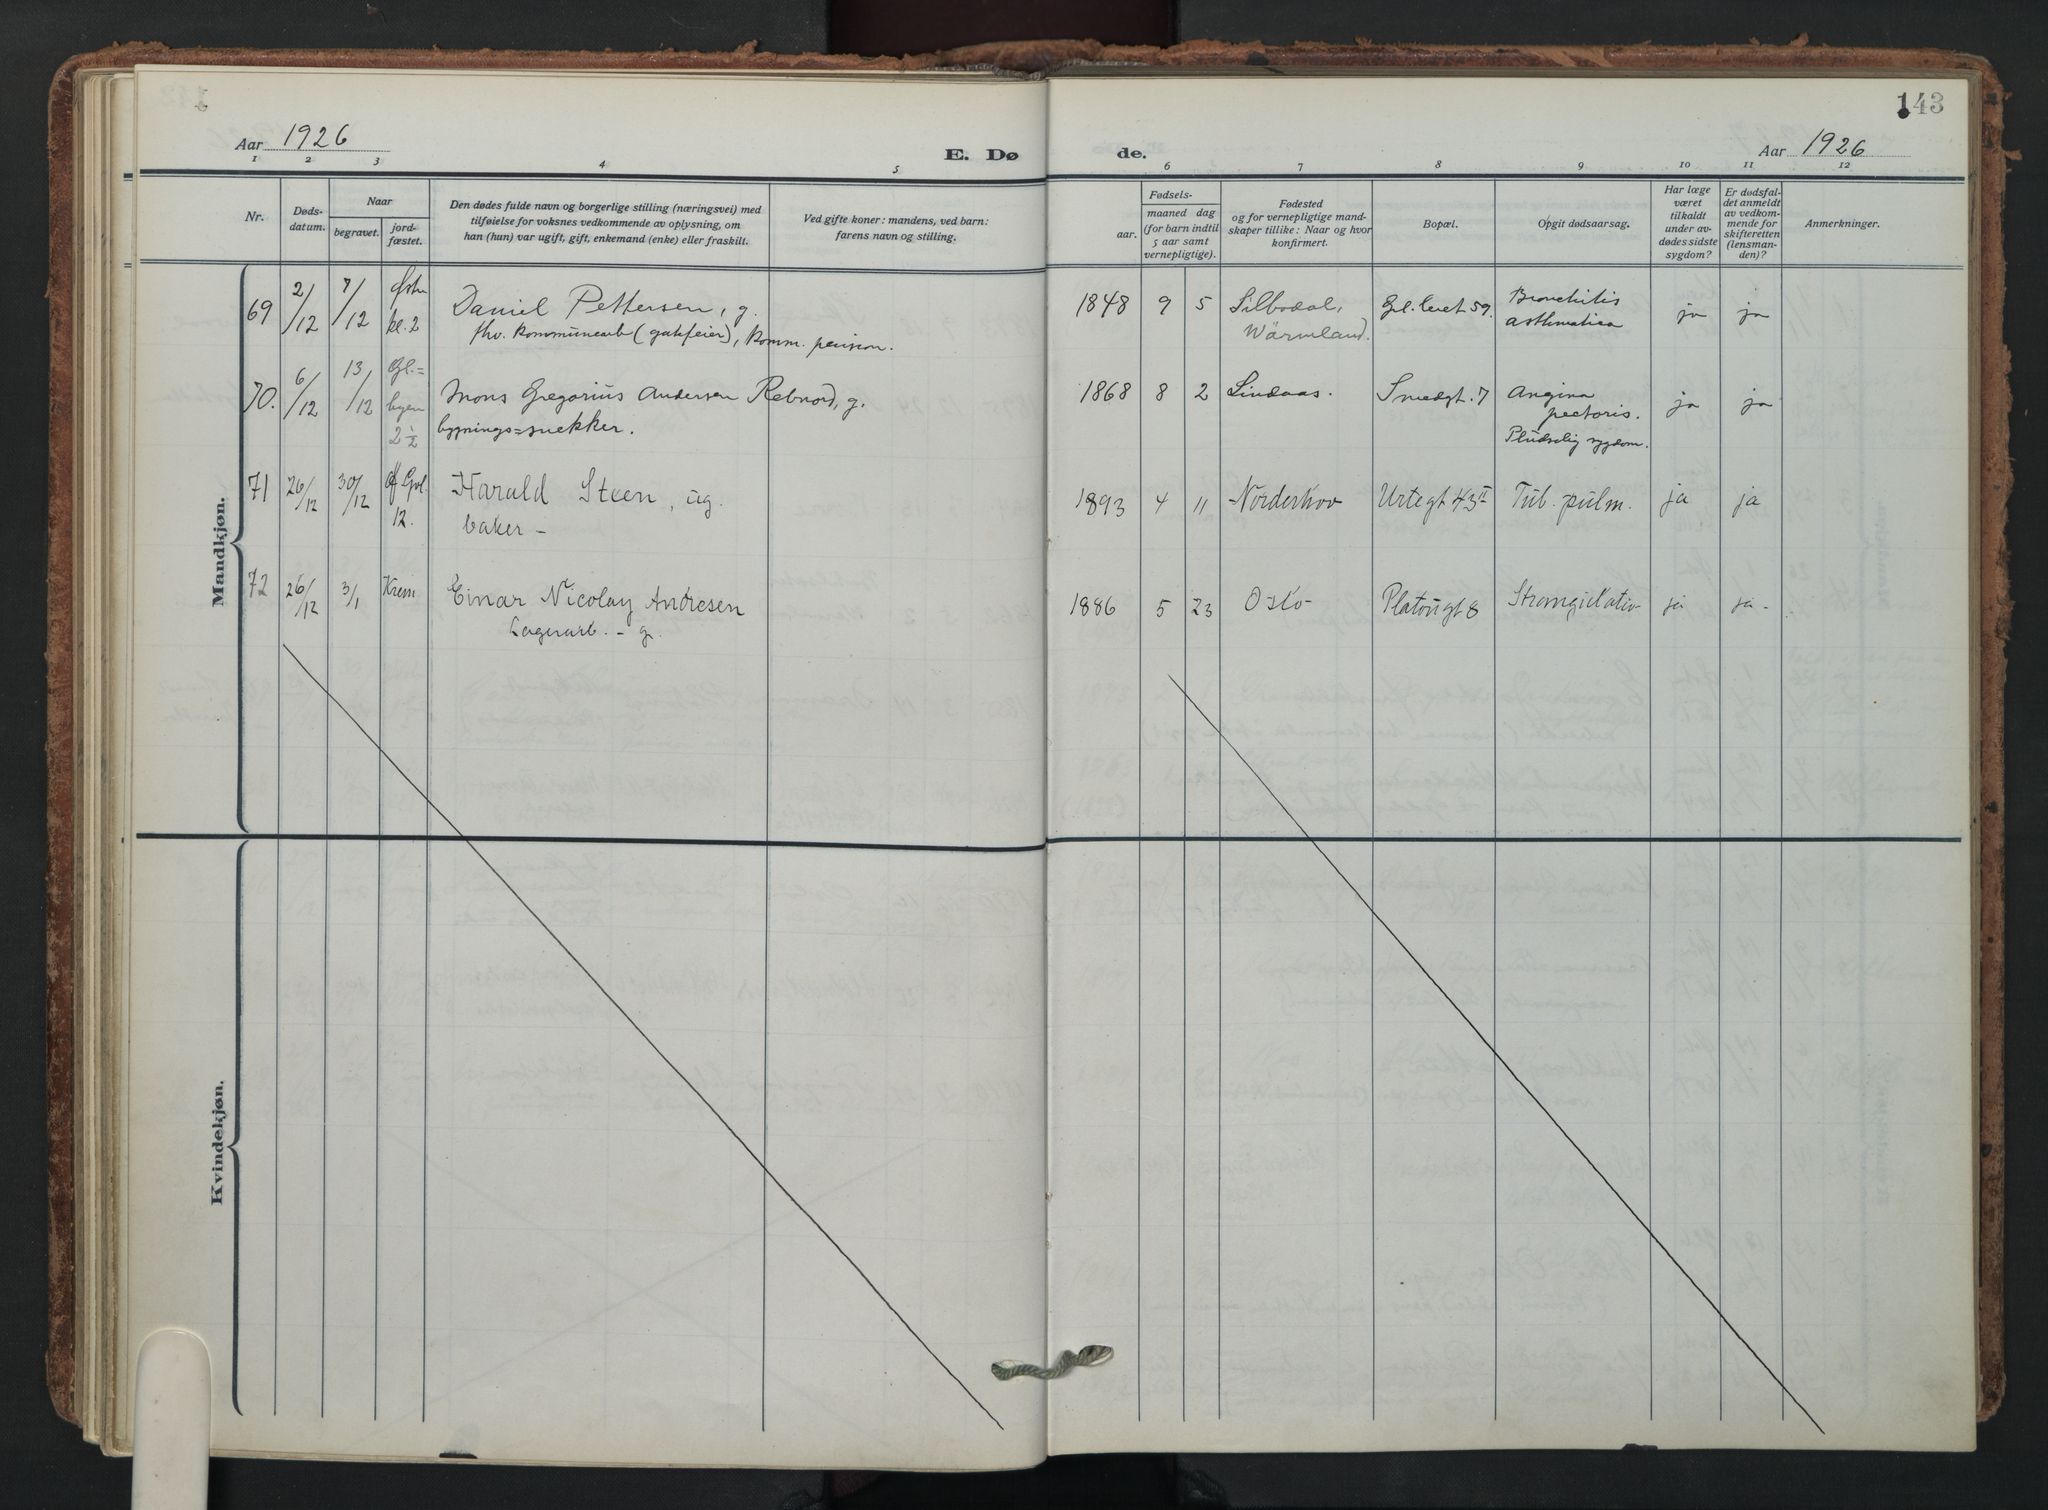 143
Aar 1926
E. Dø
de.
Aar 1926
1 2 3 4 5 6 7 8 9 10 11 12
Nr.
Døds-
datum.
Naar
begravet.
jord-
fæstet.
Den dødes fulde navn og borgerlige stilling (næringsvei) med
tilføielse for voksnes vedkommende av oplysning, om
han (hun) var ugift, gift, enkemand (enke) eller fraskilt.
Ved gifte koner: mandens, ved barn:
farens navn og stilling.
Fødsels-
aar.
maaned dag
(for barn indtil
5 aar samt
vernepligtige).
Fødested
og for vernepligtige mand-
skaper tillike: Naar og hvor
konfirmert.
Bopæl.
Opgit dødsaarsag.
Har læge
været
tilkaldt
under av-
dødes sidste
sygdom?
Er dødsfal-
det anmeldt
av vedkom-
mende for
skifteretten
(lensman-
den)?
Anmerkninger.
Mandkjøn.
69 2/12 7/12 Østre kl. 2 Daniel Pettersen, g. 1848 9 5 Silbodal, Gl. leret 59. Bronchitis ja ja
fhv. kommunearb (gatefeier), komm. pension. Wärmland. asthmatica
70. 6/12 13/12 Gl.= byen 2 1/2 Mons Gregorius Andersen Rebnord, g. 1868 8 2 Lindaas. Smedgt. 7 Angina ja ja
bygnings=snekker. pectoris.
Pludselig sygdom.
71 26/12 30/12 12. Harald Steen, ug. 1893 4 11 Norderhov Urtegt 43 II Tub. pulm. ja ja
baker –
72 26/12 3/1 Krem Einar Nicolay Andresen 1886 5 23 Oslo Platougt 8 ja ja -
Lagerarb. – g.
Kvindekjøn.